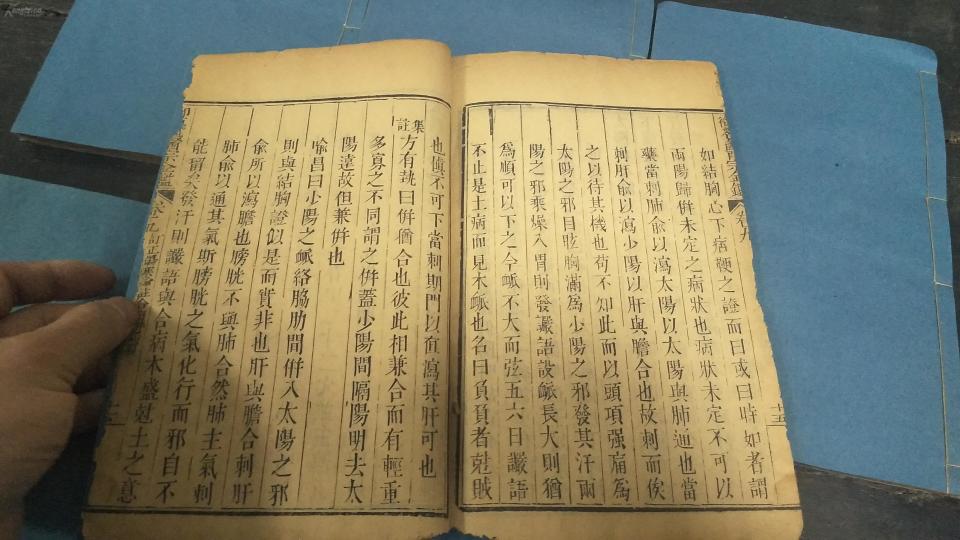 如結胸心下痞鞕之證而曰或曰時如者謂
兩陽歸併未定之病狀也病狀未定不可以
藥當刺肺俞以瀉太陽以太陽與肺通也當
刺肝俞以瀉少陽以肝與膽合也故刺而俟
之以待其機也苟不知此而以頭項强痛爲
太陽之邪目眩胸滿爲少陽之邪發其汗兩
陽之邪乘燥入胃則發讝語設脈長大則猶
爲順可以下之今脈不大而弦五六日讝語
不止是土病而見木脈也名曰負負者尅賊
也愼不可下當刺期門以直瀉其肝可也
集註方有執曰併猶合也彼此相兼合而有輕重
多寡之不同謂之併蓋少陽間隔陽明去太
陽遠故但兼併也
喻昌曰少陽之脈絡脇肋間併入太陽之邪
則與結胸證似是而實非也肝與膽合刺肝
俞所以瀉膽也膀胱不與肺合然肺主氣刺
肺俞以通其氣斯膀胱之氣化行而邪自不
能留矣發汗則讝語與合病木盛尅土之意
卷九
十五